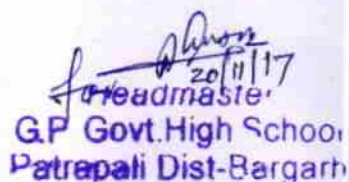 20/11/17
Headmaster
G.P Govt. High School
Patrapali Dist-Bargarh